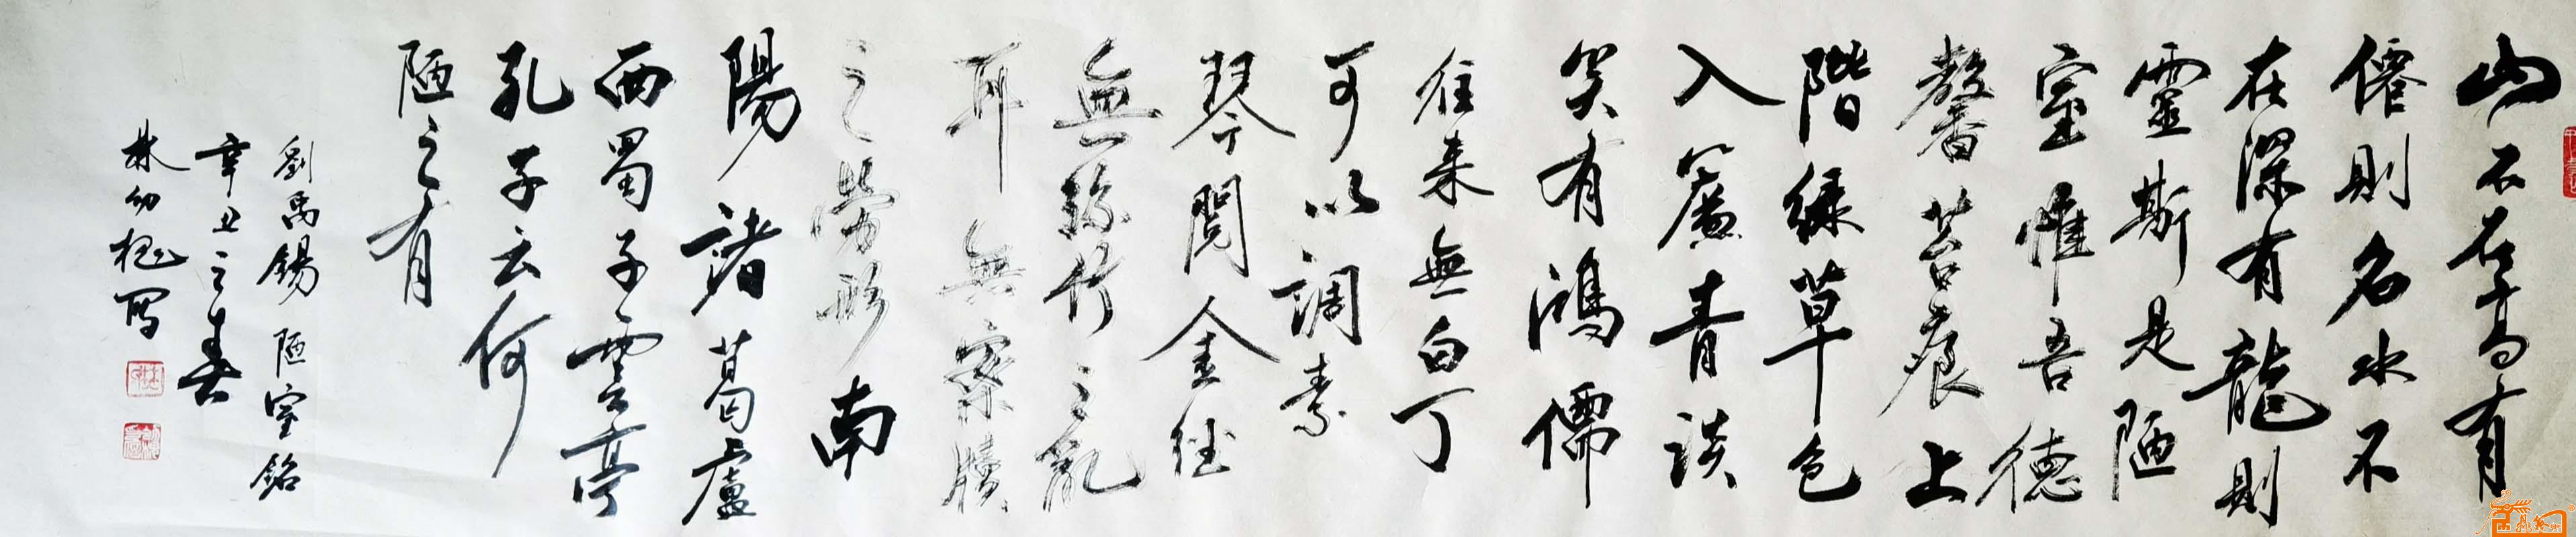 山不在高有
僊則名水不
在深有龍則
靈斯是陋
室惟吾德
馨苔痕上
階綠草色
入簾青談
笑有鴻儒
往来無白丁
可以調素
琴閱金経
無絲竹之亂
耳無案牘
之勞形南
陽諸葛廬
西蜀子雲亭
孔子云何
陋之有
劉禹錫陋室銘
辛丑之春
林幼槐寫